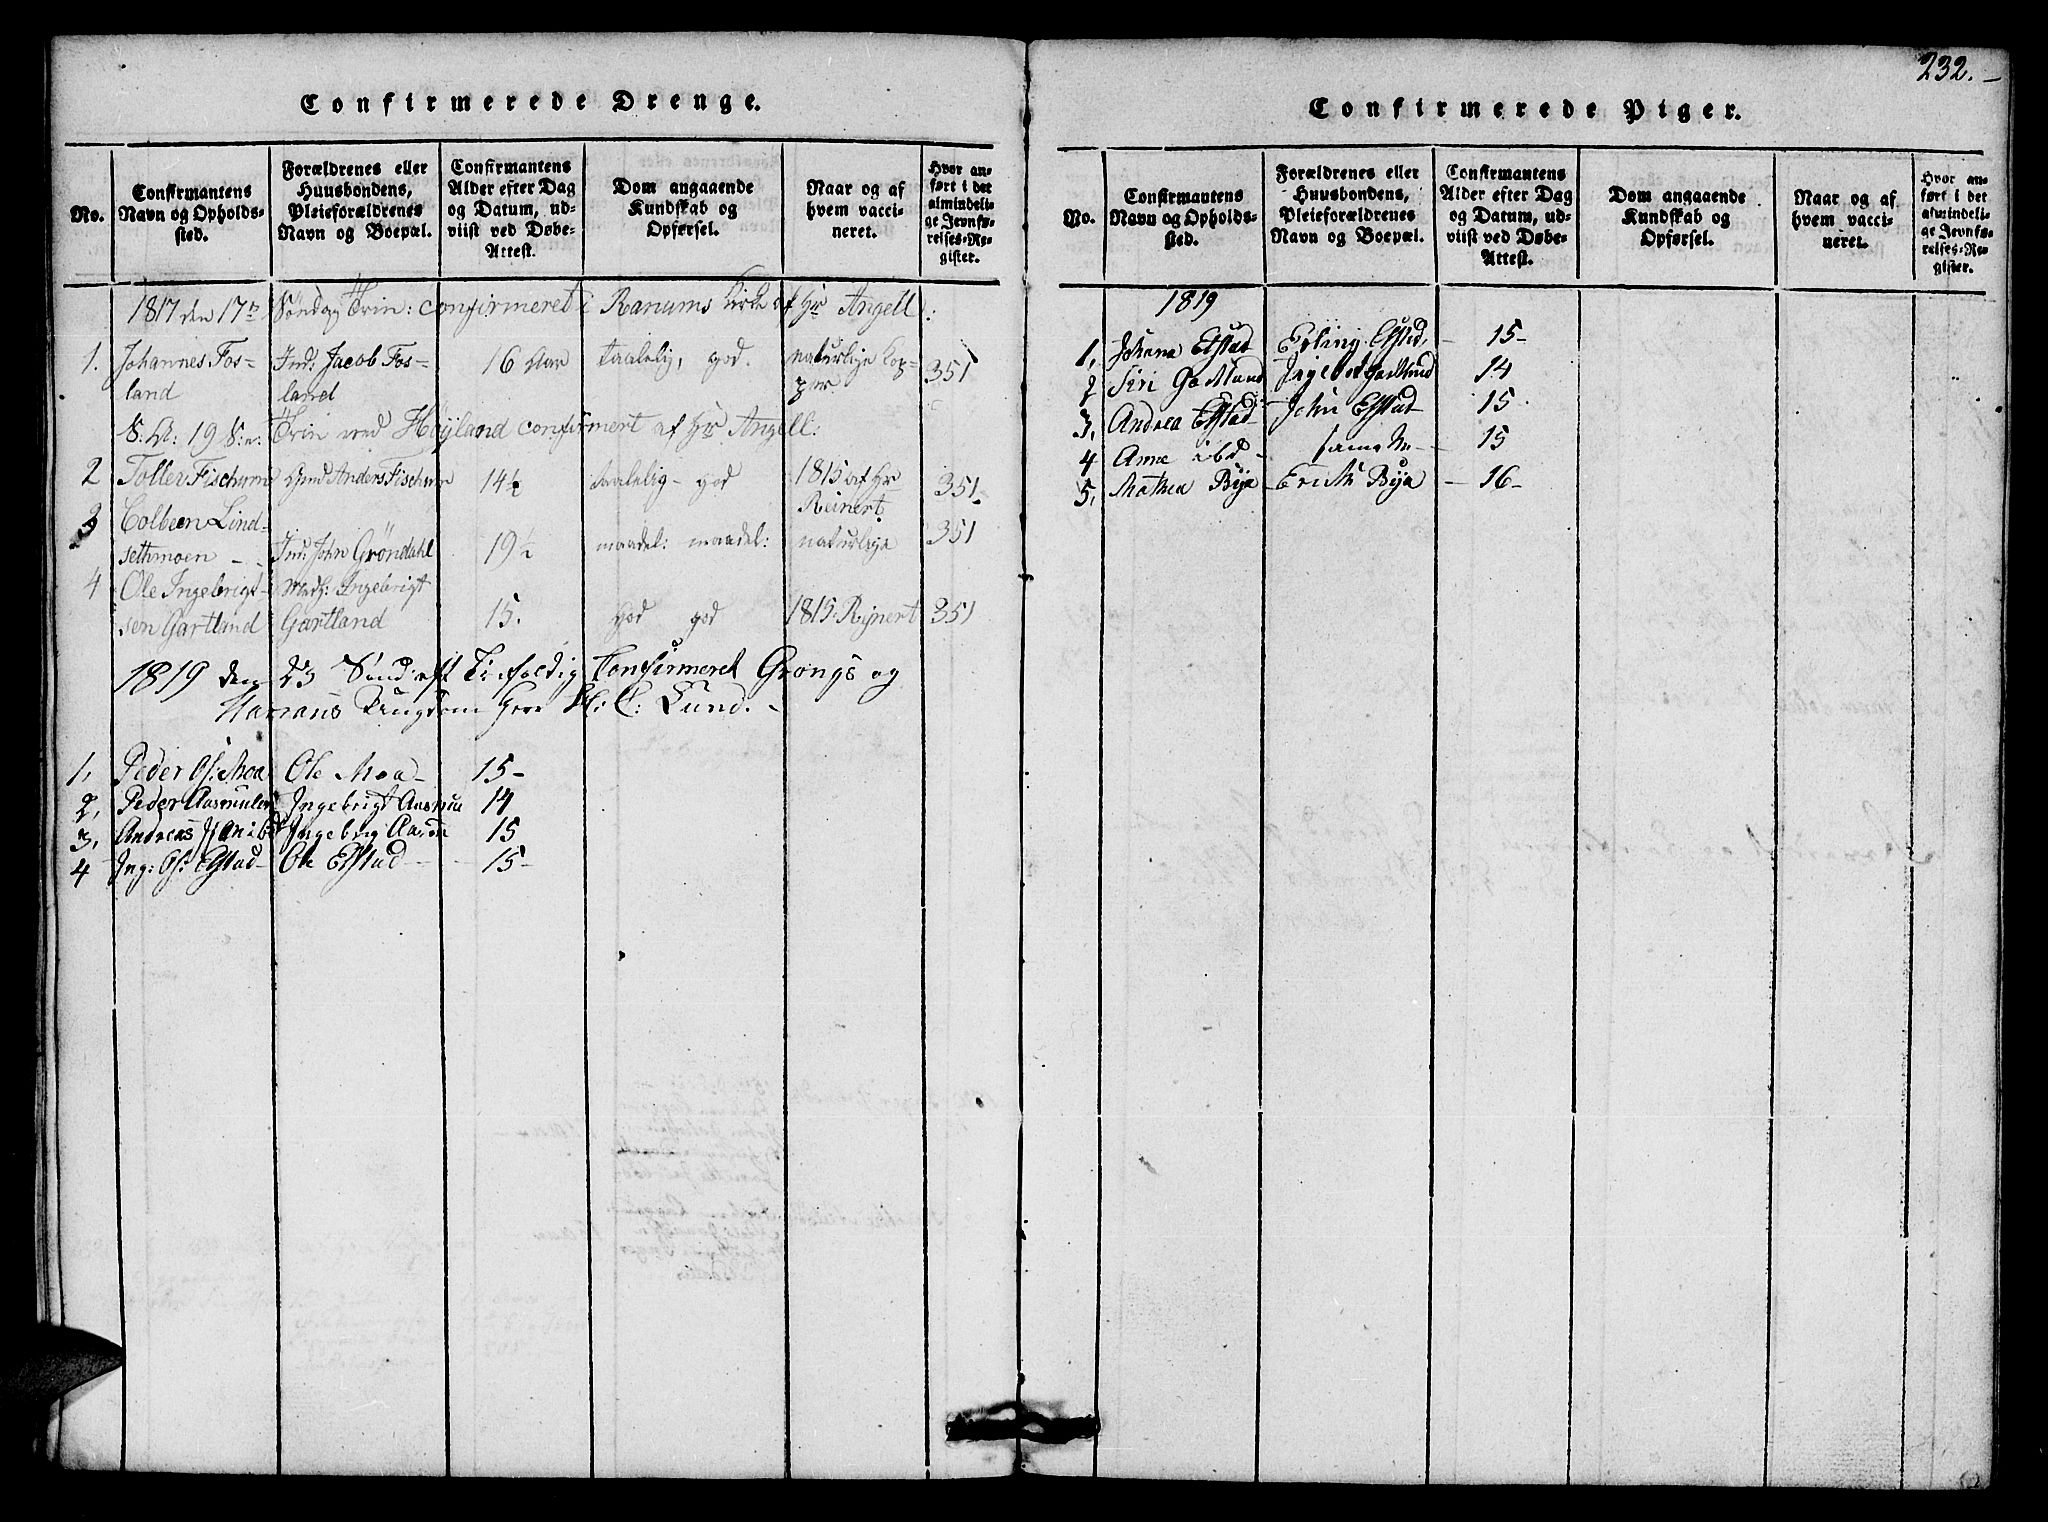 232.
Confirmerede Drenge.
No.
Confirmantens Navn og Opholds-
sted.
Forældrenes eller
Huusbondens,
Pleieforældrenes
Navn og Boepæl.
Confirmantens
Alder efter Dag
og Datum, ud-
viist ved Døbe-
Attest.
Dom angaaende
Kundskab og
Opførsel.
Naar og af
hvem vacci-
neret.
Hvor an-
ført i det
almindeli-
ge Jevnfø-
relses-Re-
gister.
1817 den 17de Søndag Trin: confirmeret i Ranums Kirke af Hr Angell:
1. Johannes Fos- Ind: Jacob Fos- 16 Aar taalelig, god. naturlige Kop- 351
land land per
S: D: 19 S: e: Trin ved Høyland confirmert af Hr Angell:
2 Toller Fischum Gmd Anders Fischum 14½ taalelig - god 1815 af Hr 351
Reinert.
3 Colbeen Lind-
sethmoen - - Ind: John Gröndahl 19½ maadel: maadel: naturlige 351
4 Ole Ingebrigt- Ingebrigt
sen Gartland Gartland 15. god god 1815. Reinert 351
1819 den 23 Sønd: eft Trefoldig Confirmeret Grongs og
Harrans Ungdom Herr C: Lund. -
1, Peder Ols: Moa Ole Moa - 15 -
2, Peder Ingebrigt Aasmu 14
3, Andreas ibd Ingebrig 15
4 Ing: Ols: Elstad - Ole Elstad - - - 15 -
Confirmerede Piger.
No.
Confirmantens
Navn og Opholds-
sted.
Forældrenes eller
Huusbondens,
Pleieforældrenes
Navn og Boepæl.
Confirmantens
Alder efter Dag
og Datum, ud-
viist ved Døbe-
Attest.
Dom angaaende
Kundskab og
Opførsel.
Naar og af
hvem vacci-
neret.
Hvor an-
ført i det
almindeli-
ge Jevnfø-
relses-Re-
gister.
1819
1, Johana Elstad Erling Elstad, - 15 -
2 Siri Gartland Ingebret Gartland 14
3, Andrea Elstad - John Elstad - 15.
4 Anne ibd - samme - - 15
5, Mathea Bya - Erich Bya - 16 -